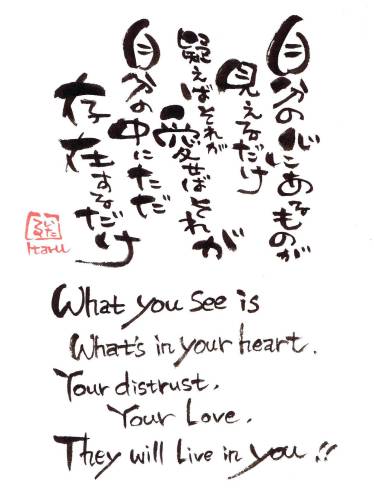 自分の心にあるものが
見えるだけ
疑えばそれが
愛せばそれが
自分の中にただ
存在するだけ
いたる
Itaru
What you see is
What's in your heart.
Your distrust,
Your Love,
They will Live in you!!